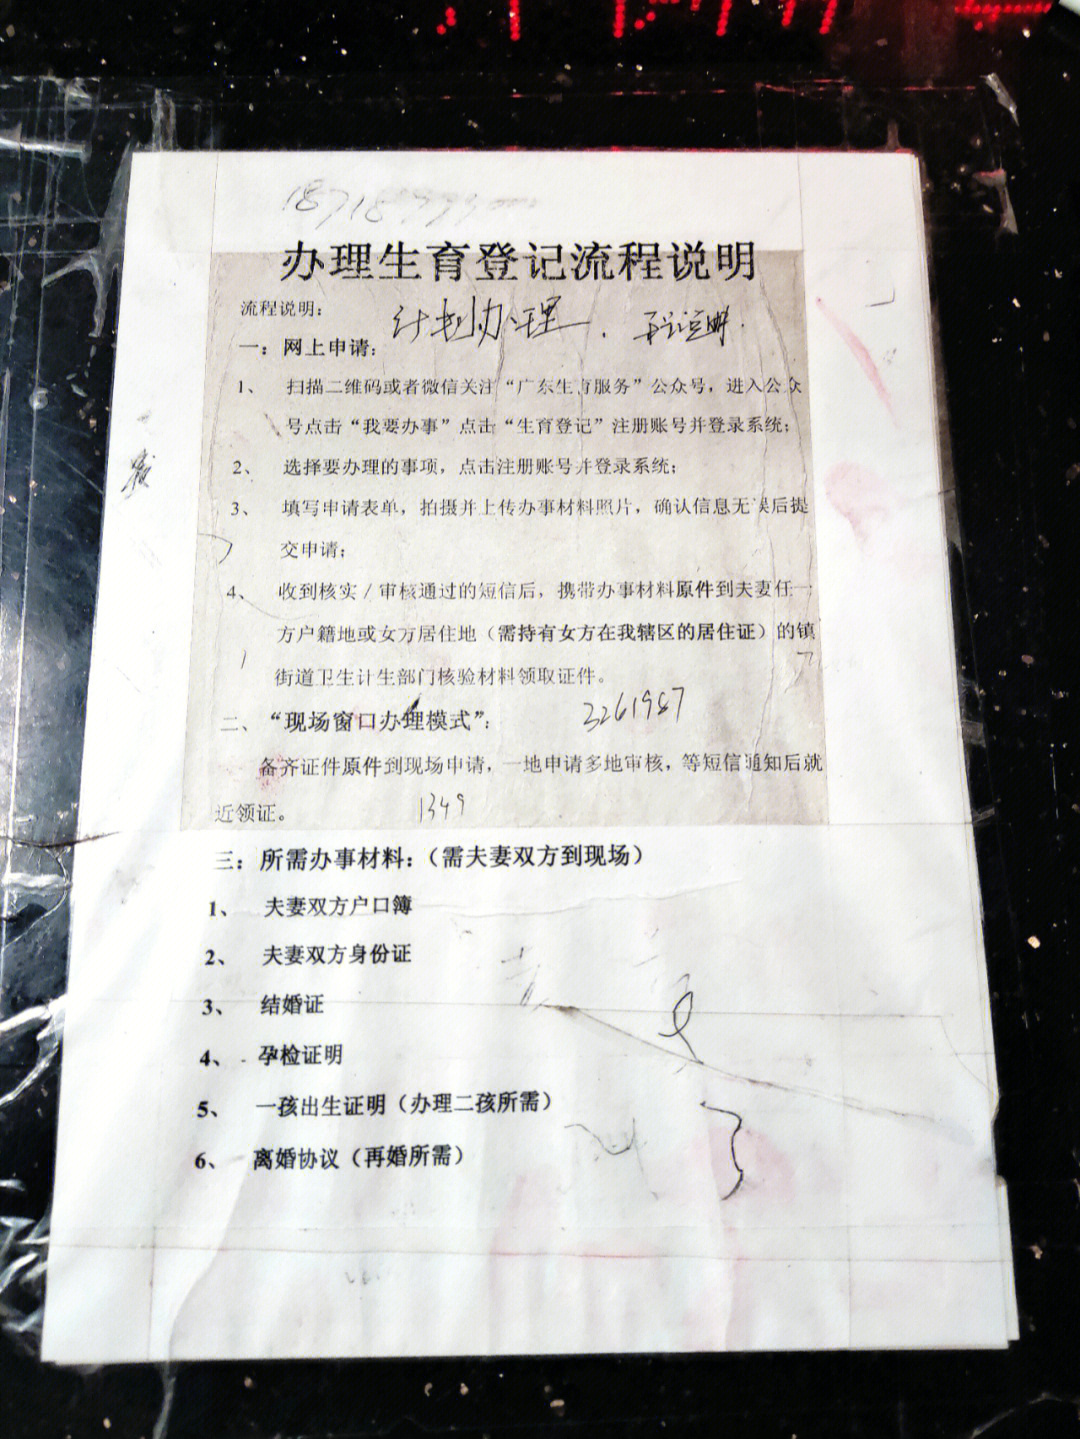 办理生育登记流程说明
流程说明：
计划办理
一：网上申请：
1、 扫描二维码或者微信关注“广东生育服务”公众号，进入公众
号点击“我要办事”点击“生育登记”注册账号并登录系统；
2、 选择要办理的事项，点击注册账号并登录系统；
3、 填写申请表单，拍摄并上传办事材料照片，确认信息无误后提
交申请；
4、 收到核实／审核通过的短信后，携带办事材料原件到夫妻任一
方户籍地或女方居住地（需持有女方在我辖区的居住证）的镇
街道卫生计生部门核验材料领取证件。
二、“现场窗口办理模式”：
3261987
备齐证件原件到现场申请，一地申请多地审核，等短信通知后就
近领证。
1349
三：所需办事材料：（需夫妻双方到现场）
1、 夫妻双方户口簿
2、 夫妻双方身份证
3、 结婚证
4、 孕检证明
5、 一孩出生证明（办理二孩所需）
6、 离婚协议（再婚所需）